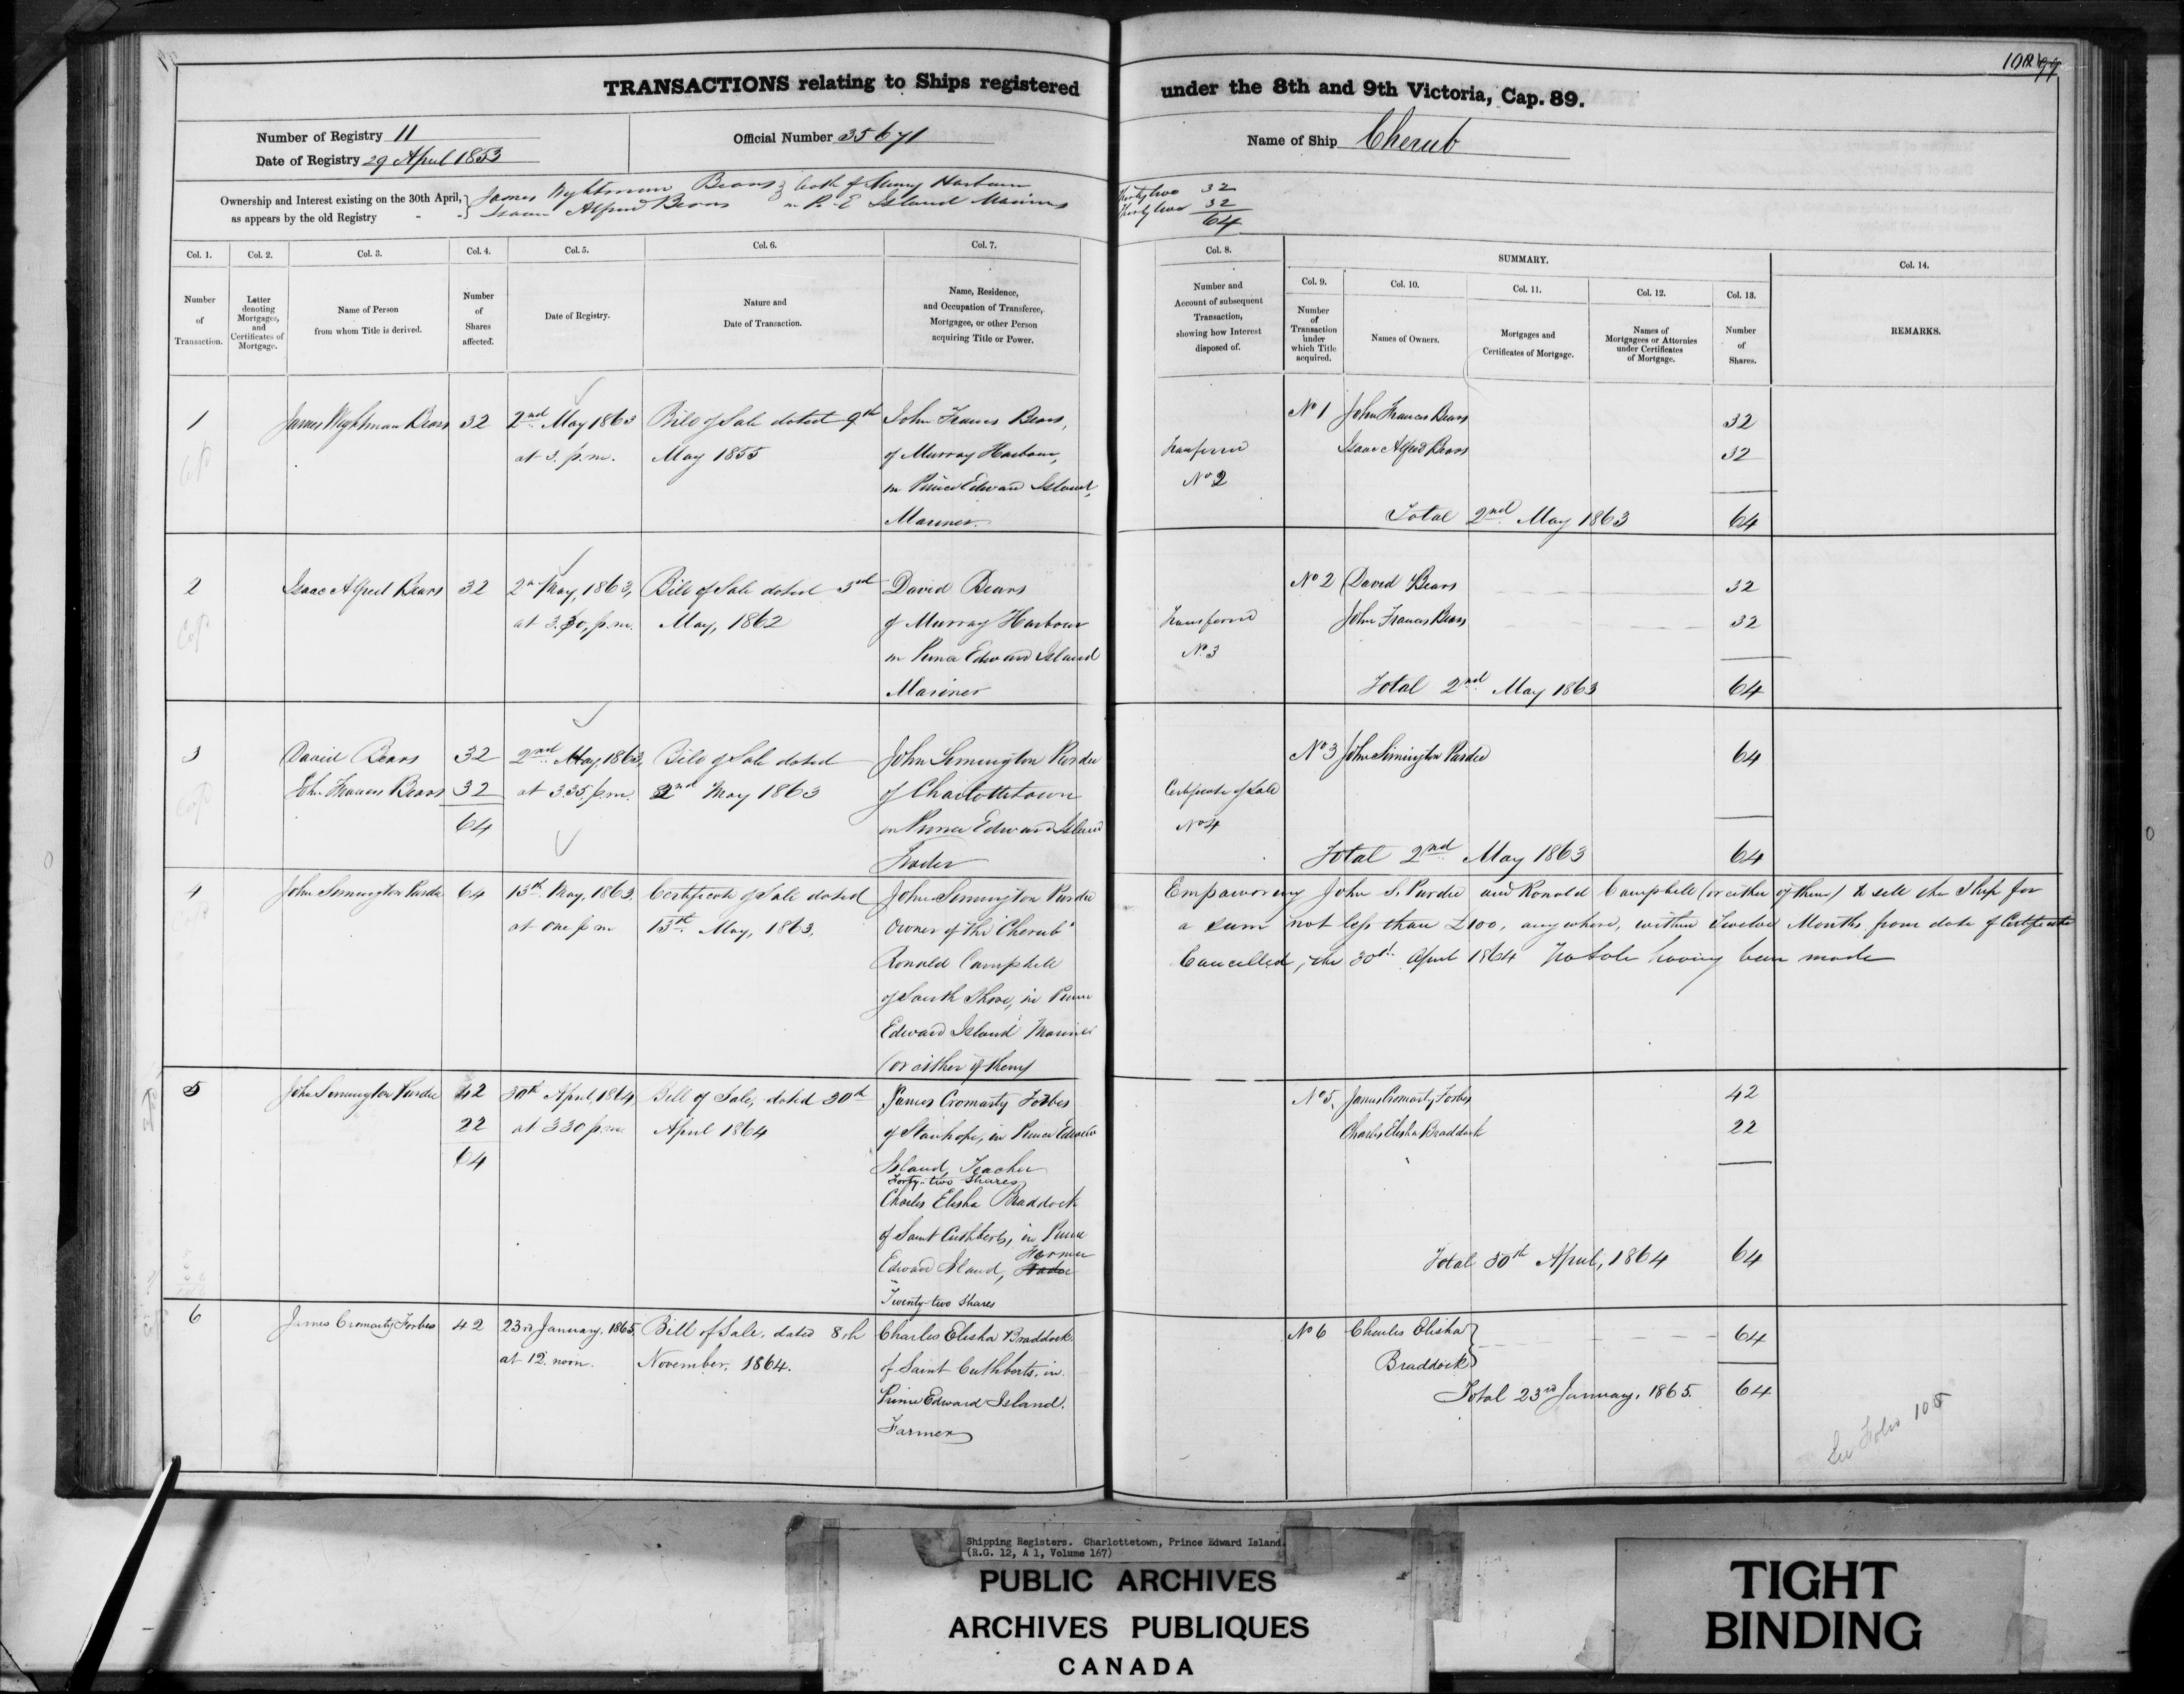 TRANSACTIONS relating to Ships registered under the 8th and 9th Victoria, Cap. 89.
Number of Registry 11
Date of Registry 29 April 1853
Official Number 35671
Name of Ship Cherub
Ownership and Interest existing on the 30th April,
as appears by the old Registry
James Wightman Bears } both of Murray Harbour
Isaac Alfred Bears } in P. E Island Mariners
Thirty two 32
Thirty two 32
64
Col. 1.
Number
of
Transaction.
Col. 2.
Letter
denoting
Mortgages,
and
Certificates of
Mortgage.
Col. 3.
Name of Person
from whom Title is derived.
Col. 4.
Number
of
Shares
affected.
Col. 5.
Date of Registry.
Col. 6.
Nature and
Date of Transaction.
Col. 7.
Name, Residence,
and Occupation of Transferee,
Mortgagee, or other Person
acquiring Title or Power.
Col. 8.
Number and
Account of subsequent
Transaction,
showing how Interest
disposed of.
SUMMARY.
Col. 9.
Number
of
Transaction
under
which Title
acquired.
Col. 10.
Names of Owners.
Col. 11.
Mortgages and
Certificates of Mortgage.
Col. 12.
Names of
Mortgagees or Attornies
under Certificates
of Mortgage.
Col. 13.
Number
of
Shares.
Col. 14.
REMARKS.
1
James Wightman Bears
32
2nd May 1863
at 3. p.m.
Bill of Sale dated 9th
May 1855
John Francis Bears,
of Murray Harbour,
in Prince Edward Island,
Mariner.
Transferred
No 2
No 1 John Francis Bears 32
Isaac Alfred Bears 32
Total 2nd May 1863 64
2
Isaac Alfred Bears
32
2n May, 1863,
at 3.30, p.m.
Bill of Sale dated 3rd
May, 1862
David Bears
of Murray Harbour
in Prince Edward Island
Mariner
Transferred
No. 3
No 2 David Bears 32
John Francis Bears 32
Total 2nd May 1863 64
3
David Bears 32
John Francis Bears 32
64
2nd May, 1863,
at 3.35, p.m.
Bill of Sale dated
2nd May 1863
John Simington Purdie
of Charlottetown
in Prince Edward Island
Trader
Certificate of Sale
No 4
No 3 John Simington Purdie 64
Total 2nd May 1863 64
4
John Simington Purdie
64
13th May, 1863,
at one p m
Certificate of Sale dated
13th May, 1863.
John Simington Purdie
Owner of the "Cherub"
Ronald Campbell
of South Shore, in Prince
Edward Island Mariner
(or either of them)
Empowering John S. Purdie and Ronald Campbell (or either of them) to sell the Ship for
a sum not less than £100, any where, within Twelve Months from date of Certificate
Cancelled, the 30th April 1864 No Sale having been made
5
John Simington Purdie
42
22
64
30th April, 1864
at 3 30 p.m.
Bill of Sale, dated 30th
April 1864
James Cromarty Forbes
of Stanhope, in Prince Edward
Island, Teacher
Forty-two Shares
Charles Elisha Braddock
of Saint Cuthberts, in Prince
Edward Island, Trader Farmer
Twenty-two Shares
No 5, James Cromarty Forbes 42
Charles Elisha Braddock 22
Total 30th April, 1864 64
6
James Cromarty Forbes
42
23rd January, 1865,
at 12. noon.
Bill of Sale, dated 8th
November, 1864.
Charles Elisha Braddock
of Saint Cuthberts, in
Prince Edward Island.
Farmer
No 6 Charles Elisha
Braddock 64
Total 23rd January, 1865. 64
See Folio 105
Shipping Registers. Charlottetown, Prince Edward Island.
(R.G. 12, A 1, Volume 167)
PUBLIC ARCHIVES
ARCHIVES PUBLIQUES
CANADA
TIGHT
BINDING